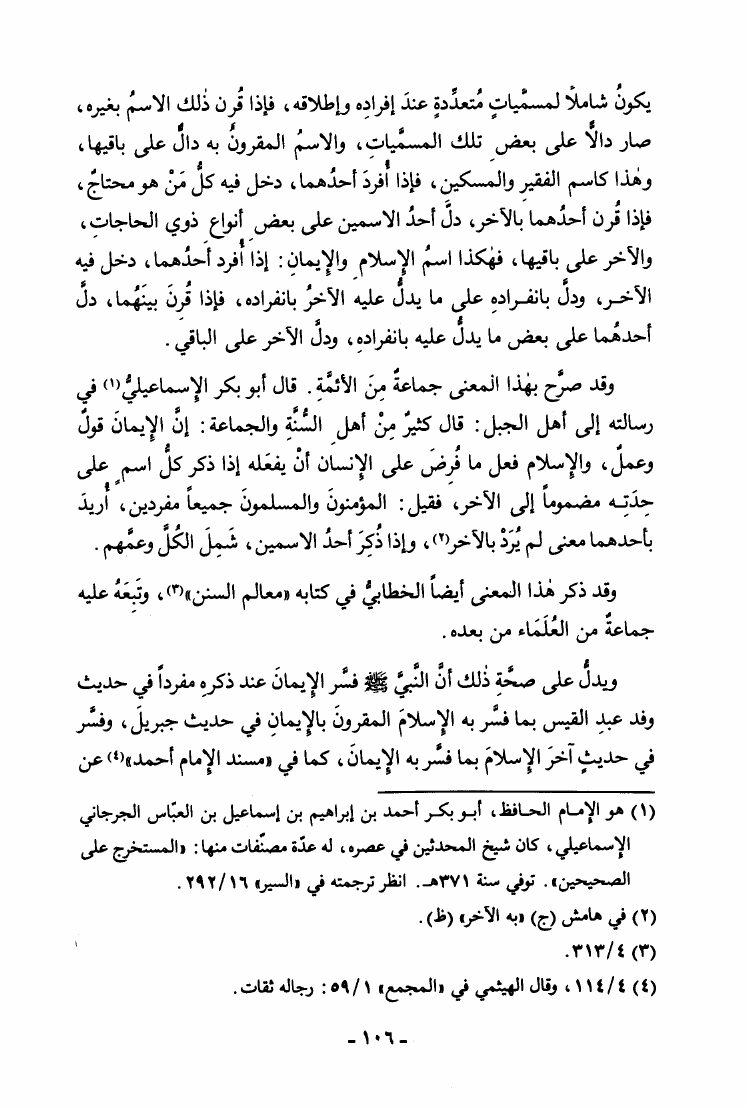 يكونُ شاملاً لمسمَّياتٍ مُتعدِّدةٍ عندَ إفرادِه وإطلاقه، فإذا قُرن ذٰلك الاسمُ بغيره،
صار دالاًّ على بعضِ تلك المسمَّياتِ، والاسمُ المقرونُ به دالٌّ على باقيها،
وهٰذا كاسم الفقيرِ والمسكينِ، فإذا أُفردَ أحدُهما، دخل فيه كلُّ مَنْ هو محتاجٌ،
فإذا قُرن أحدُهما بالآخر، دلَّ أحدُ الاسمين على بعضِ أنواعِ ذوي الحاجاتِ،
والآخر على باقيها، فهٰكذا اسمُ الإسلامِ والإيمانِ: إذا أُفرد أحدُهما، دخل فيه
الآخـر، ودلَّ بانفـرادِهِ على ما يدلُّ عليه الآخرُ بانفراده، فإذا قُرِنَ بينَهُما، دلَّ
أحدهُما على بعض ما يدلُّ عليه بانفرادِه، ودلَّ الآخر على الباقي.
وقد صرَّح بهٰذا المعنى جماعةٌ مِنَ الأئمَّةِ. قال أبو بكر الإسماعيليُّ(١) في
رسالته إلى أهل الجبل: قال كثيرٌ مِنْ أهلِ السُّنَّةِ والجماعة: إنَّ الإيمانَ قولٌ
وعملٌ، والإسلام فعل ما فُرِضَ على الإنسان أنْ يفعَله إذا ذكر كلُّ اسمٍ على
حِدَتِـه مضموماً إلى الآخر، فقيل: المؤمنونَ والمسلمونَ جميعاً مفردين، أُريدَ
بأحدهما معنى لم يُرَدْ بالآخر(٢)، وإذا ذُكِرَ أحدُ الاسمين، شَمِلَ الكُلَّ وعمَّهم.
وقد ذكر هٰذا المعنى أيضاً الخطابيُّ في كتابه «معالم السنن»(٣)، وتَبِعَهُ عليه
جماعةٌ من العُلَمَاء من بعده.
ويدلُّ على صحَّةِ ذٰلك أنَّ النَّبيَّ ﷺ فسَّر الإيمانَ عند ذكرِهِ مفرداً في حديث
وفد عبدِ القيس بما فسَّر به الإسلامَ المقرونَ بالإيمانِ في حديث جبريلَ، وفسَّر
في حديثٍ آخرَ الإسلامَ بما فسَّر به الإيمانَ، كما في «مسند الإمام أحمد»(٤) عن
(١) هو الإمـام الحـافظ، أبـو بكـر أحمد بن إبراهيم بن إسماعيل بن العبّاس الجرجاني
الإسماعيلي، كان شيخ المحدثين في عصره، له عدّة مصنّفات منها: «المستخرج على
الصحيحين». توفي سنة ٣٧١هـ. انظر ترجمته في «السير» ٢٩٢/١٦.
(٢) في هامش (ج) «به الآخر» (ظ).
(٣) ٣١٣/٤.
(٤) ١١٤/٤، وقال الهيثمي في «المجمع» ٥٩/١: رجاله ثقات.
- ١٠٦ -